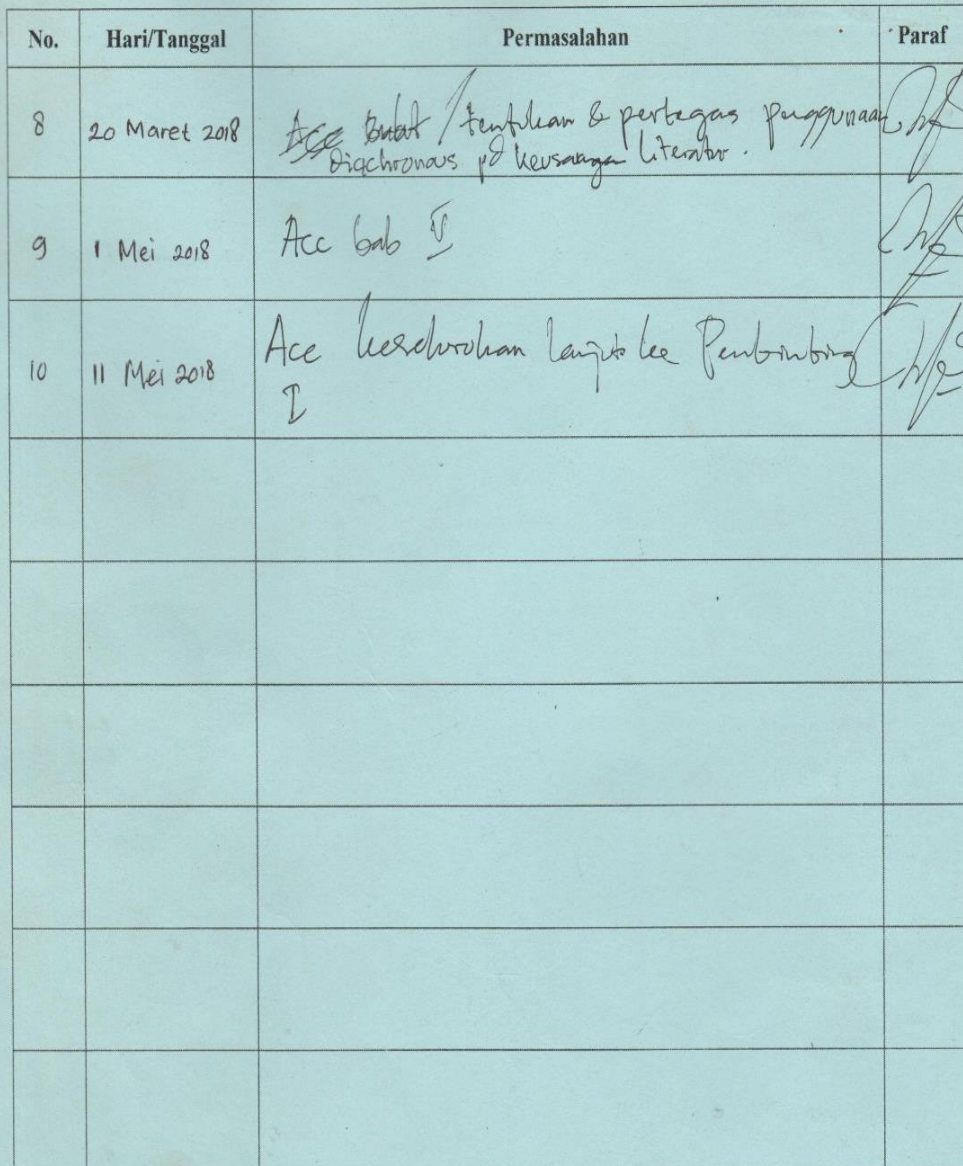 No. Hari/Tanggal Permasalahan Paraf
8 20 Maret 2018 / tentukan & pertegas penggunaan
Diachronous pd keusangan literatur.
9 1 Mei 2018 Acc bab V
10 11 Mei 2018 Acc keseluruhan lanjut ke Pembimbing
I